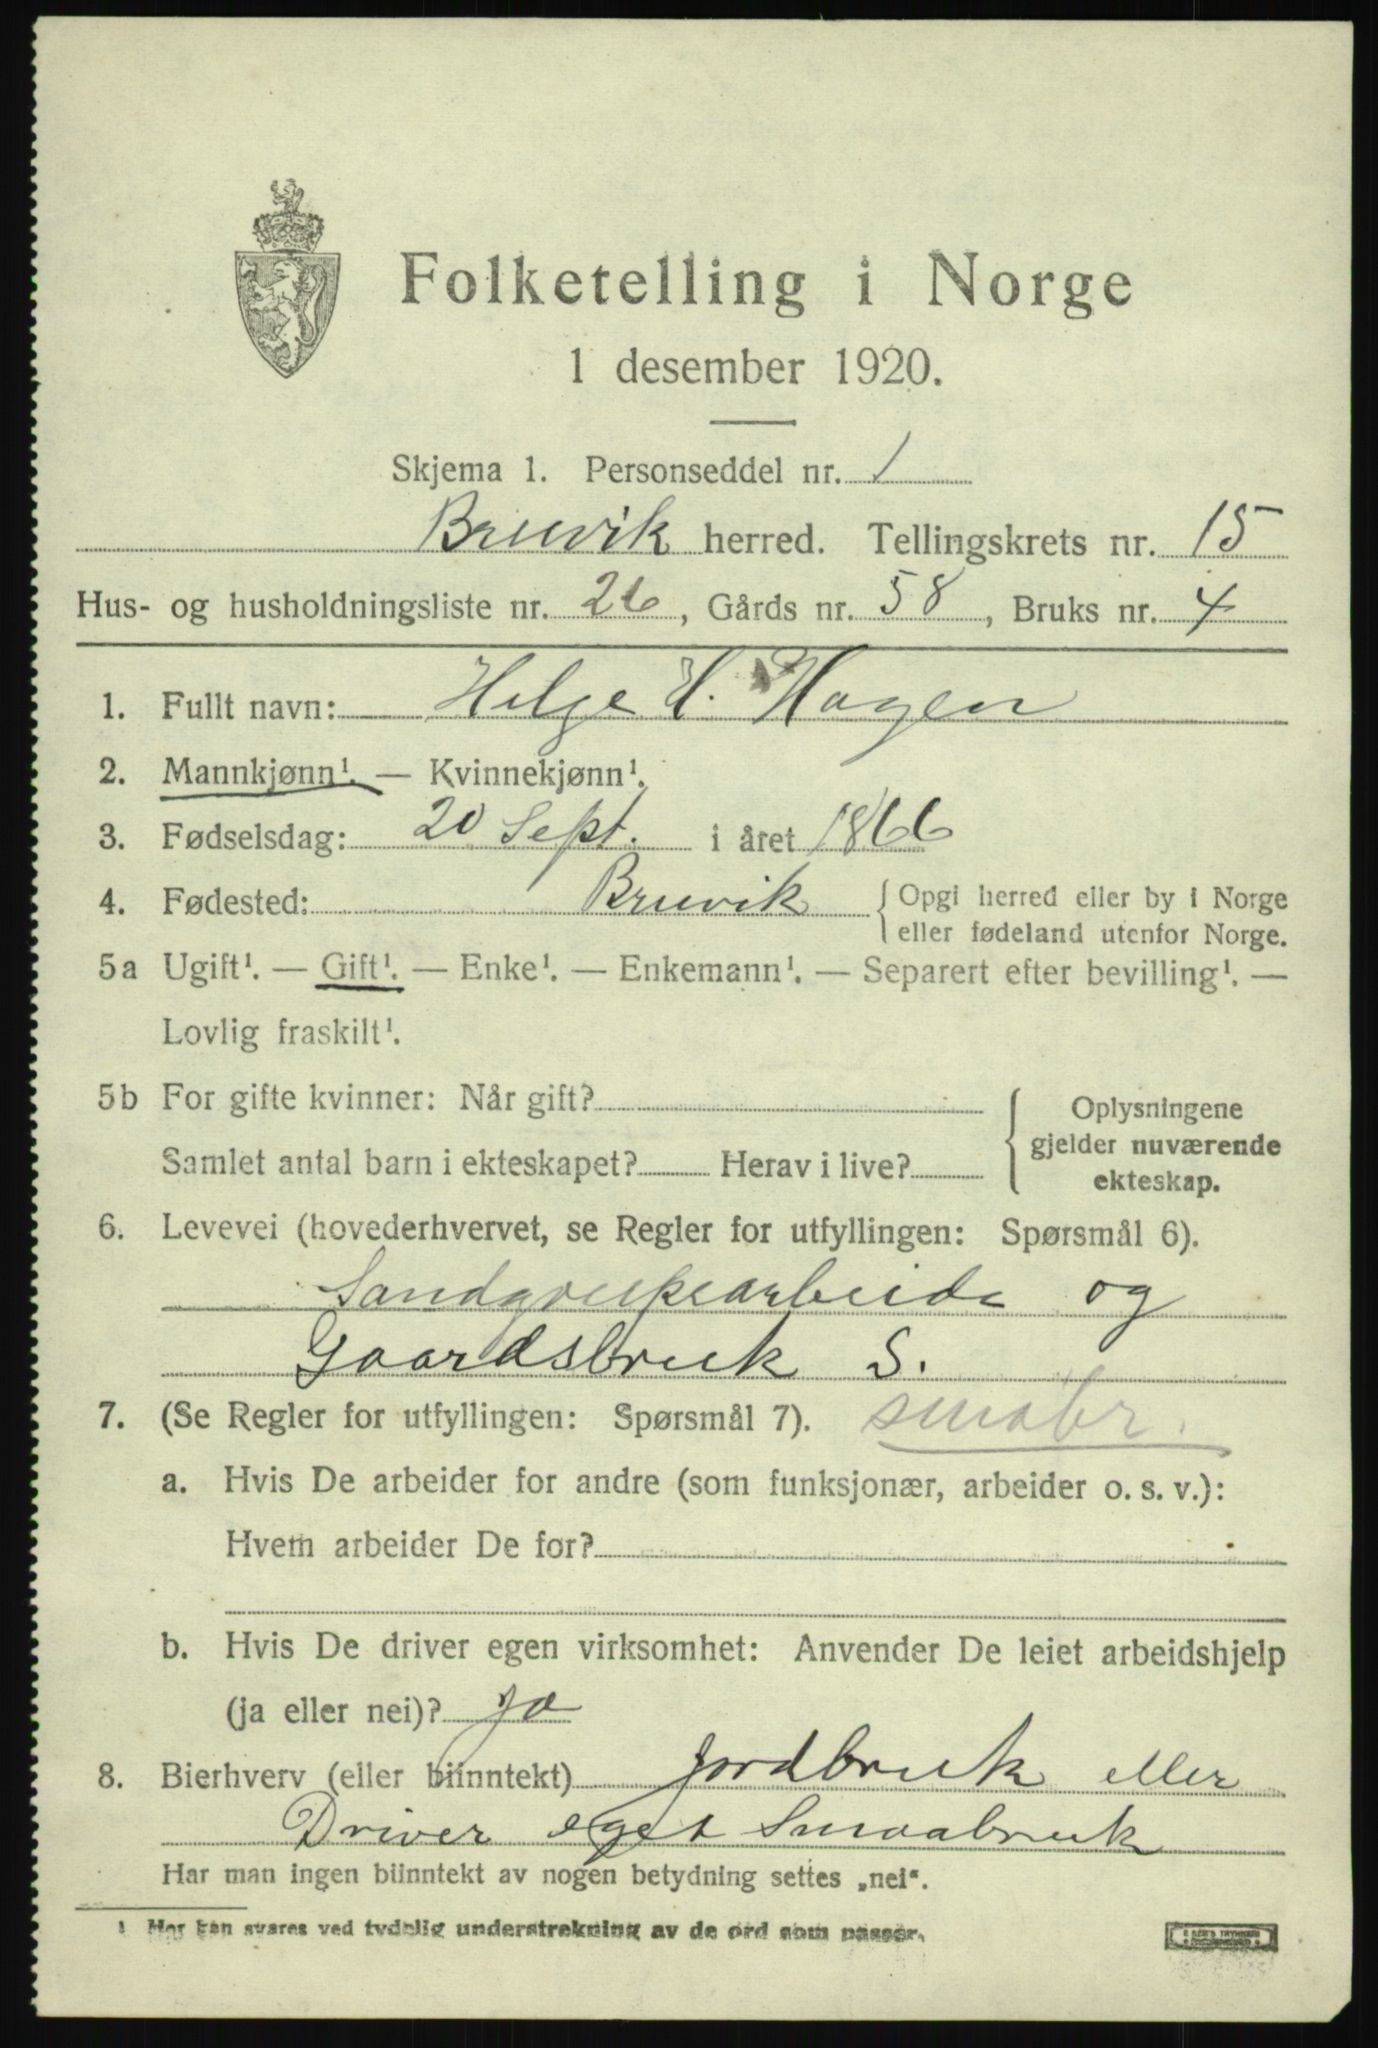 Folketelling i Norge
1 desember 1920.
Skjema 1. Personseddel nr. 1
Bruvik herred. Tellingskrets nr. 15
Hus- og husholdningsliste nr. 26, Gårds nr. 58, Bruks nr. 4
1. Fullt navn: Helge H. Hagen
2. Mannkjønn¹. — Kvinnekjønn¹.
3. Fødselsdag: 20 Sept. i året 1866
4. Fødested: Bruvik { Opgi herred eller by i Norge
eller fødeland utenfor Norge.
5a Ugift¹. — Gift¹. — Enke¹. — Enkemann¹. — Separert efter bevilling¹. —
Lovlig fraskilt¹.
5b For gifte kvinner: Når gift?
Samlet antal barn i ekteskapet? Herav i live?
Oplysningene
gjelder nuværende
ekteskap.
6. Levevei (hovederhvervet, se Regler for utfyllingen: Spørsmål 6).
og
Gaardsbruk S.
7. (Se Regler for utfyllingen: Spørsmål 7). småbr.
a. Hvis De arbeider for andre (som funksjonær, arbeider o. s. v.):
Hvem arbeider De for?
b. Hvis De driver egen virksomhet: Anvender De leiet arbeidshjelp
(ja eller nei)? Ja
8. Bierhverv (eller biinntekt) Jordbruk eller
Driver eget Smaabruk
Har man ingen biinntekt av nogen betydning settes „nei“.
¹ Her kan svares ved tydelig understrekning av de ord som passer.